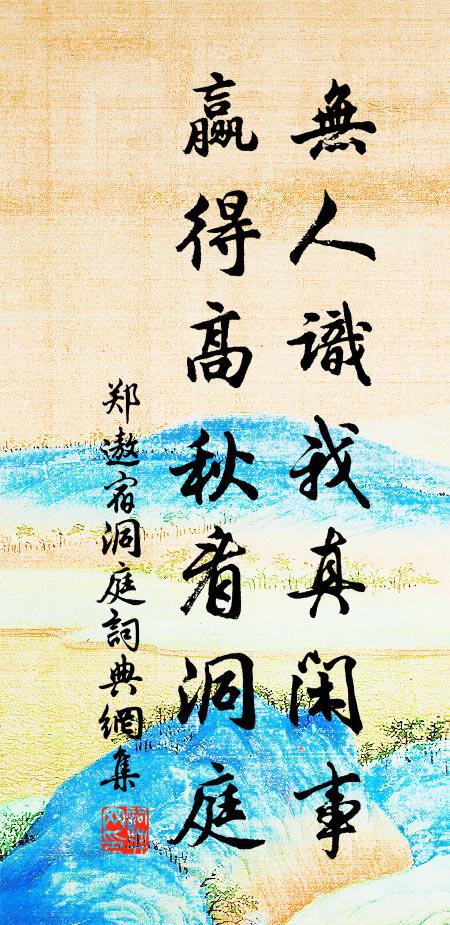 無人識我真閑事
贏得高秋看洞庭
郑遨宿洞庭詞典網集